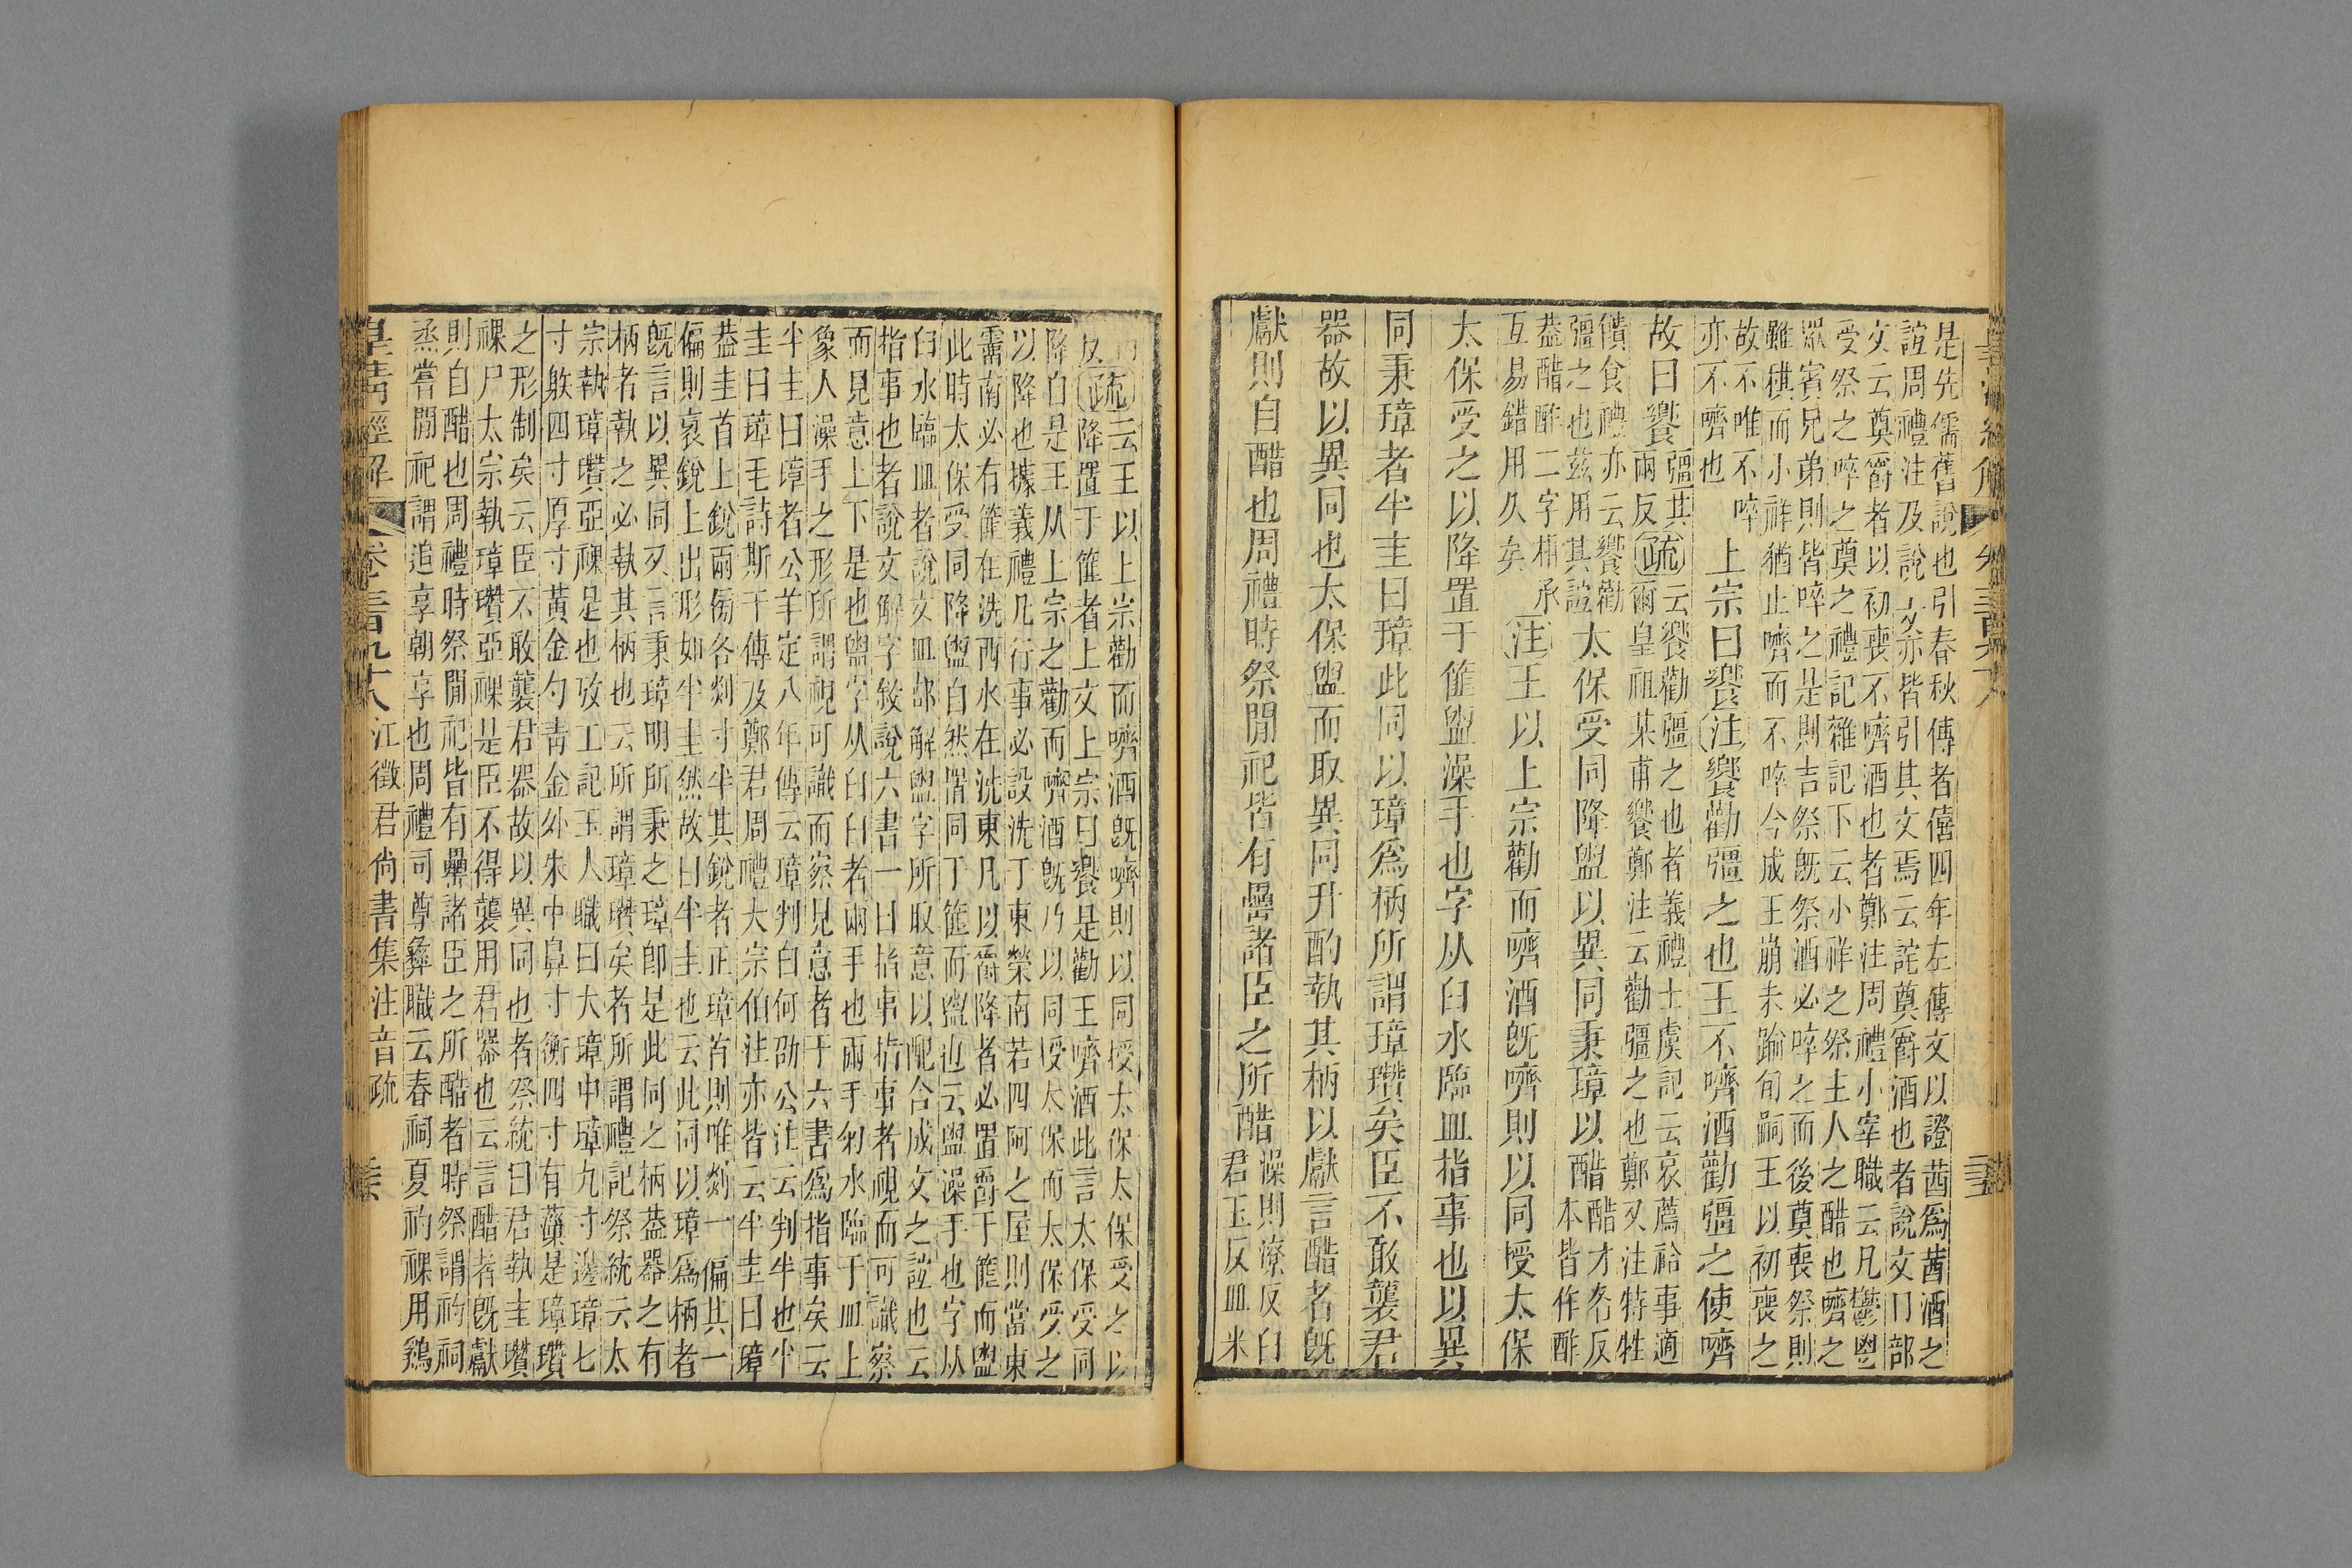 是先儒舊說也引春秋傳者僖四年左傳文以證茜爲莤酒之
誼周禮注及說文亦皆引其文焉云詫奠爵酒也者說文冂部
文云奠爵者以初喪不嚌酒也者鄭注周禮小宰職云凡鬱鬯
受祭之啐之奠之禮記雜記下云小祥之祭主人之酢也嚌之
眾賓兄弟則皆啐之是則吉祭旣祭酒必啐之而後奠喪祭則
雖穨而小祥猶止嚌而不啐今成王崩未踰旬嗣王以初喪之
故不唯不啐
亦不嚌也
上宗曰饗注饗勸彊之也王不嚌酒勸彊之使嚌
故曰饗
彊其
兩反
疏
云饗勸彊之也者義禮士虞記云哀薦祫事適
爾皇祖某甫饗鄭注云勸彊之也鄭又注特牲
饋食禮亦云饗勸
彊之也茲用其誼
太保受同降盥以異同秉璋以醋
醋才各反
本皆作酢
葢醋酢二字相承
互易錯用久矣
注王以上宗勸而嚌酒旣嚌則以同授太保
太保受之以降置于篚盥澡手也字从臼水臨皿指事也以異
同秉璋者半圭曰璋此同以璋爲柄所謂璋瓚矣臣不敢襲君
器故以異同也太保盥而取異同升酌執其柄以獻言醋者旣
獻則自醋也周禮時祭閒祀皆有罍諸臣之所醋
澡則潦反臼
君玉反皿米
反疏
云王以上宗勸而嚌酒旣嚌則以同授太保太保受之以
降置于篚者上文上宗曰饗是勸王嚌酒此言太保受同
降自是王从上宗之勸而嚌酒旣乃以同授太保而太保受之
以降也據義禮凡行事必設洗于東榮南若四阿之屋則當東
霤南必有篚在洗西水在洗東凡以爵降者必置爵于篚而盥
此時太保受同降盥自然置同于篚而盥也云盥澡手也字从
臼水臨皿者說文皿部解盥字所取意以配合成文之誼也云
指事也者說文解字敘說六書一曰指事指事者視而可識察
而見意上下是也盥字从臼臼者兩手也兩手匊水臨于皿上
象人澡手之形所謂視可識而察見意者于六書爲指事矣云
半圭曰璋者公羊定八年傳云璋判白何劭公注云判半也半
圭曰璋毛詩斯干傳及鄭君周禮大宗伯注亦皆云半圭曰璋
葢圭首上銳兩㣃各剡寸半其銳者正璋首則唯剡一偏其一
偏則衺銳上出形如半圭然故曰半圭也云此同以璋爲柄者
旣言以異同又言秉璋明所秉之璋卽是此同之柄葢器之有
柄者執之必執其柄也云所謂璋瓚矣者所謂禮記祭統云太
宗執璋瓚亞祼是也攷工記玉人職曰大璋中璋九寸邊璋七
寸㪺四寸厚寸黃金勺靑金外朱中鼻寸衡四寸有藻是璋瓚
之形制矣云臣不敢襲君器故以異同也者祭統曰君執圭瓚
祼尸太宗執璋瓚亞祼是臣不得襲用君器也云言醋者旣獻
則自醋也周禮時祭閒祀皆有罍諸臣之所醋者時祭謂礿祠
烝嘗閒祀謂追享朝享也周禮司尊彝職云春祠夏礿祼用鷄
皇淸經解 卷三百九十八 江徵君尚書集注音疏